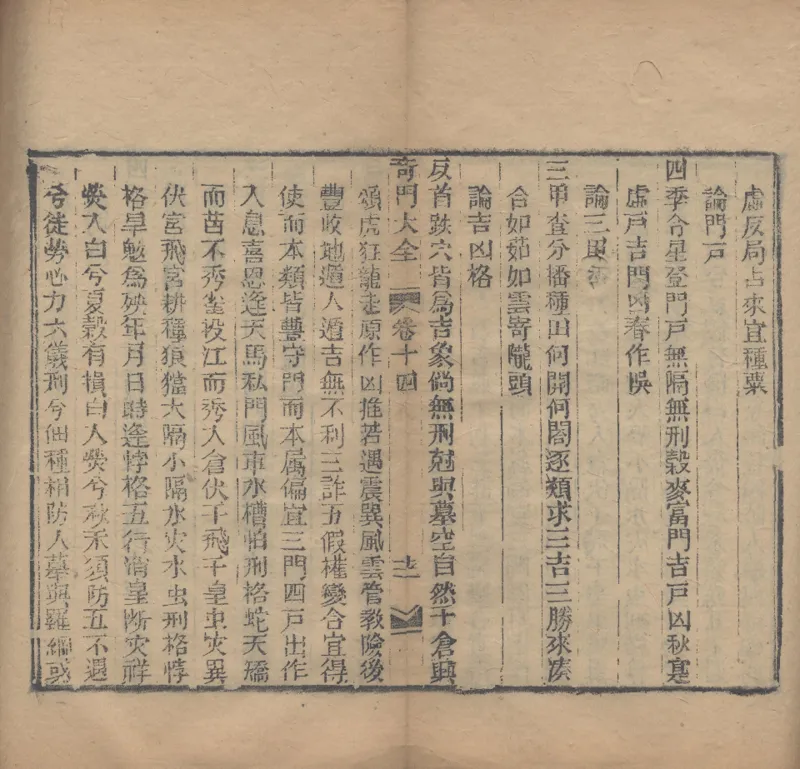 虛反局占來宜種粟
論門戶
四季合星登門戶無隔無刑穀麥富門吉戶凶秋寔
虛戶吉門凶春作悞
論三甲
三甲查分播種田何開何闔逐類求三吉三勝來湊
合如茹如雲寄隴頭
論吉凶格
反首跌穴皆爲吉象倘無刑尅與墓空自然十倉興
奇門大全 卷十四
頌虎狂龍走原作凶推若遇震巽風雲管教險後
豐收地遁人遁吉無不利三詐五假權變合宜得
使而本類皆豐守門而本属偏宜三門四戶出作
入息喜恩逢天馬私門風車水槽怕刑格蛇天矯
而苗不秀雀投江而秀人倉伏干飛干皇虫災異
伏宮飛宮耕種狼犺大隔小隔水災水虫刑格悖
格旱魃爲殃年月日時逢悖格五行消皇断災祥
熒入白兮夏穀有損白入熒兮秋禾須防五不遇
兮徒勞心力六儀刑兮佃種稍防入墓與羅網